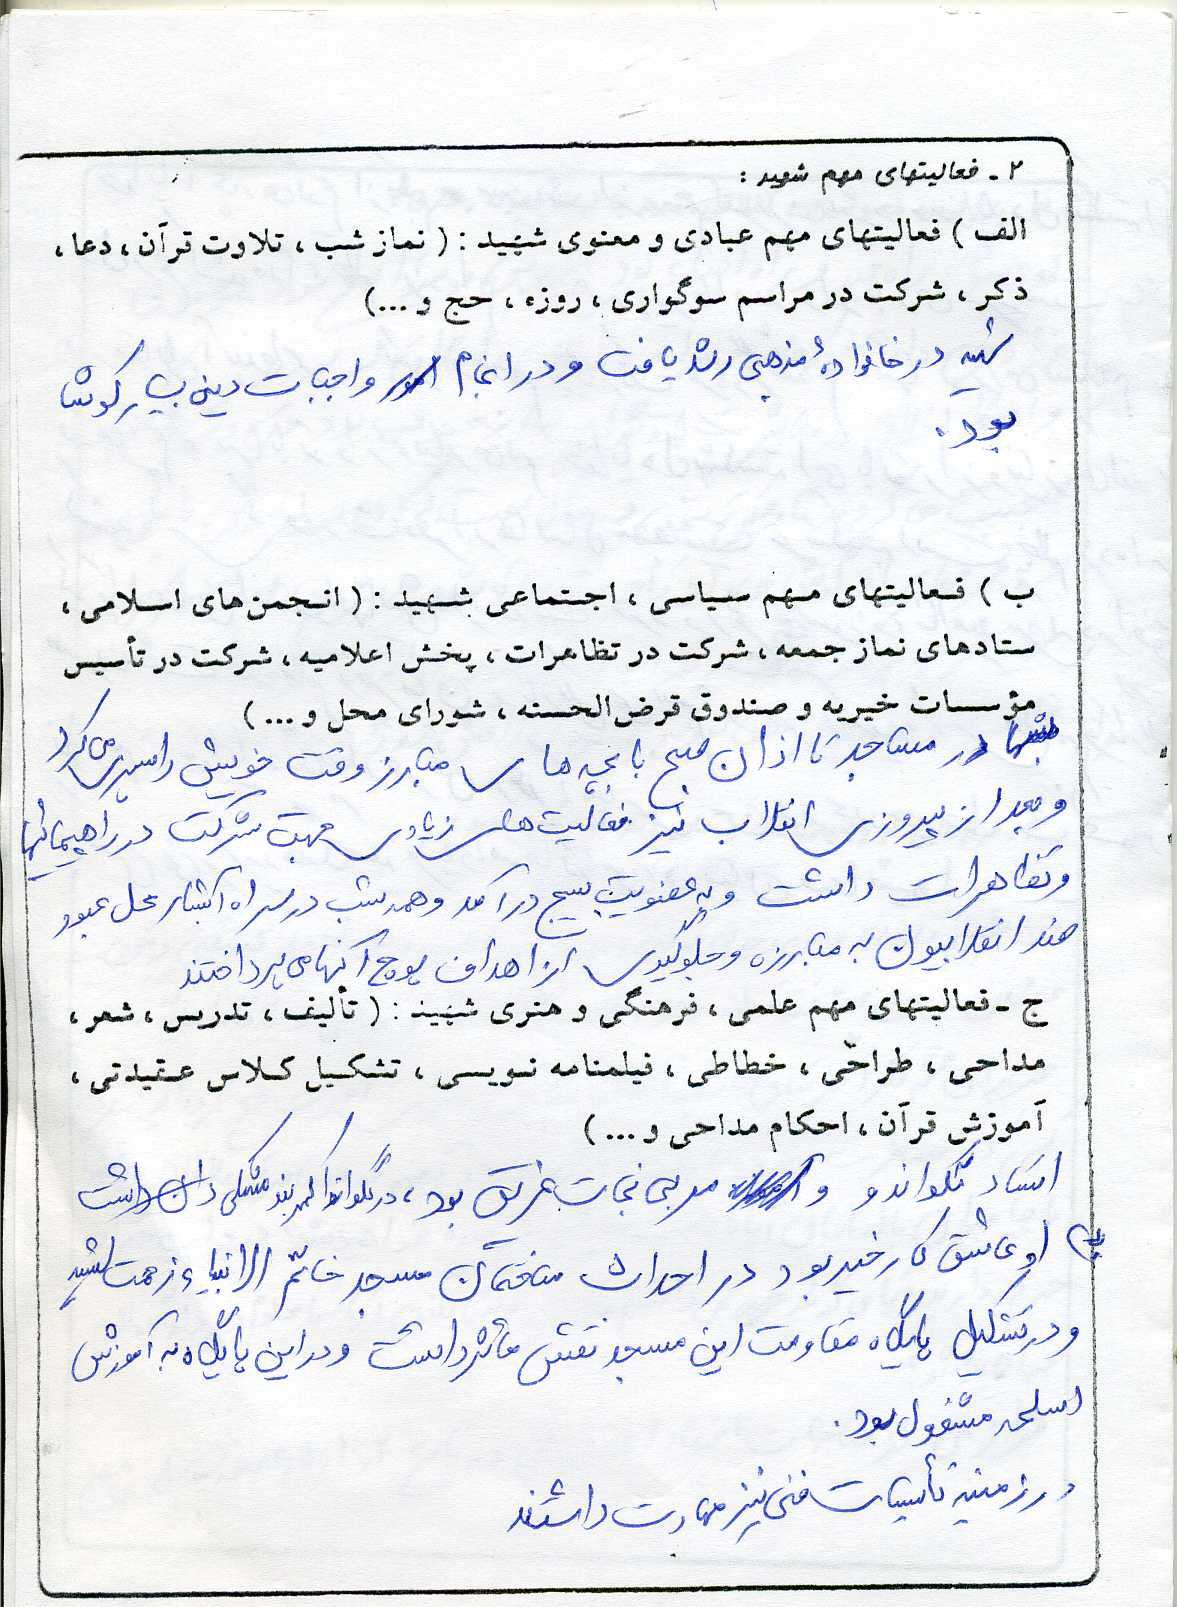 ۲ ـ فعالیتهای مهم شهید :
الف ) فعالیتهای مهم عبادی و معنوی شهید : ( نماز شب ، تلاوت قرآن ، دعا ،
ذکر ، شرکت در مراسم سوگواری ، روزه ، حج و ...)
شهید در خانوادهٔ مذهبی رشد یافت و در انجام امور واجبات دینی بسیار کوشا
بود .
ب ) فعالیتهای مهم سیاسی ، اجتماعی شهید : ( انجمن‌های اسلامی ،
ستادهای نماز جمعه ، شرکت در تظاهرات ، پخش اعلامیه ، شرکت در تأسیس
مؤسسات خیریه و صندوق قرض‌الحسنه ، شورای محل و ... )
شبها در مساجد تا اذان صبح با بچه های مبارز وقت خویش را سپری می کرد
و بعد از پیروزی انقلاب نیز فعالیت های زیادی جهت شرکت در راهپیمائیها
و تظاهرات داشت و به عضویت بسیج در آمد و همه شب در سر راه آبشار محل عبور
ضد انقلابیون به مبارزه و جلوگیری از اهداف پوچ آنها می پرداختند
ج ـ فعالیتهای مهم علمی ، فرهنگی و هنری شهید : ( تألیف ، تدریس ، شعر ،
مداحی ، طراحی ، خطاطی ، فیلمنامه نویسی ، تشکیل کلاس عقیدتی ،
آموزش قرآن ، احکام مداحی و ... )
استاد تکواندو و مربی نجات غریق بود ، در تکواندو کمربند مشکی داشت
او عاشق کار خیر بود در احداث ساختمان مسجد خاتم الانبیاء زحمت کشید
و در تشکیل پایگاه مقاومت این مسجد نقش مؤثر داشت و در این پایگاه به آموزش
اسلحه مشغول بود .
در زمینه تأسیسات فنی نیز مهارت داشتند